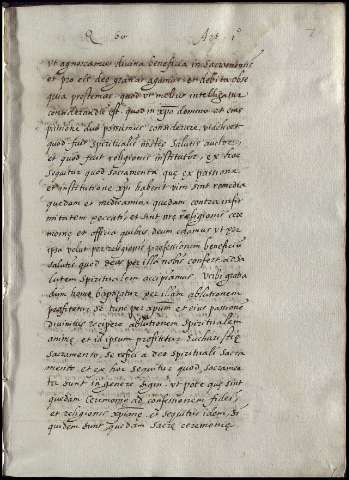 Q 60 Art. 1º
vt agnoscamus divina beneficia in sacramentis
et pro eis deo gratias agamus et debita obse
quia prestemus. quod vt melius intelligatur
considerandũ est. quod in xp̃o domino et eius
passione duo possumus considerare, videlicet
quod fuit spiritualis nr̃e salutis auctor,
et quod fuit religionis institutor, ex hoc
sequitur quod sacramenta que ex passione
et institutione xp̃i habent vim sint remedia
quedam et medicamina quedam contra infir
mitatem peccati et sint nr̃e religionis cere
monie et officia quibus deum colamus vt per
ipsa velut per religionis professionem beneficiũ
salutis quod deus per illa nobis confert ad sa
lutem spiritualem accipiamus. Vnde gratia
dum homo baptizatur per illam ablutionem
profitetur, se tunc per xp̃um et eius passionẽ
divinitus recipere ablutionem spiritualem
anime et id ipsum profitetur Eucharistie
sacramento, se refici a deo spirituali sacra
mento et ex hoc sequitur quod sacramen
ta sunt in genere signi vt pote que sint
quedam ceremonie ad confessionem fidei
et religionis xp̃iane, et sequitur idem, si
quidem sunt quedam sacre ceremonie